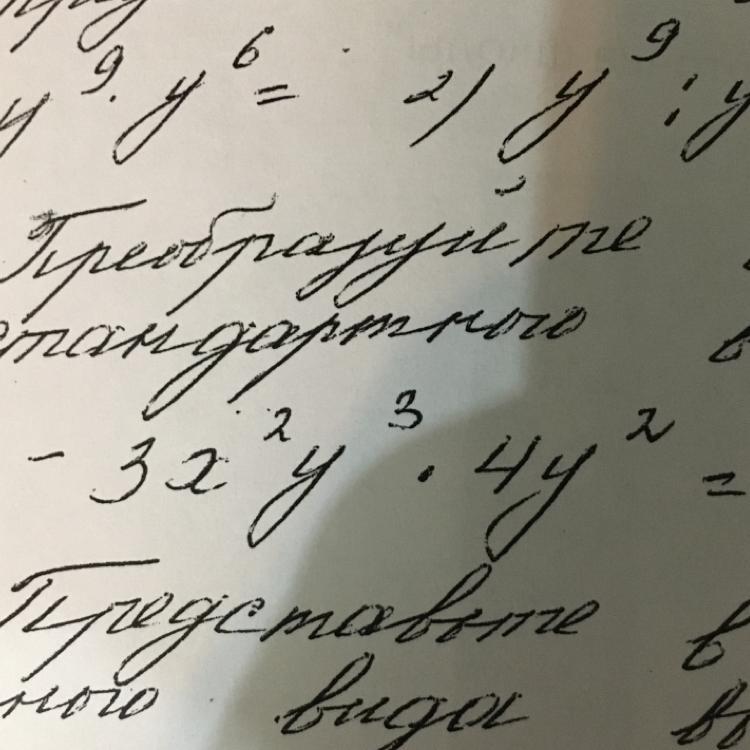 y⁹ · y⁶ = 2) y⁹ : y
Преобразуйте
стандартного в
- 3x²y³ · 4y² =
Представьте в
ного вида